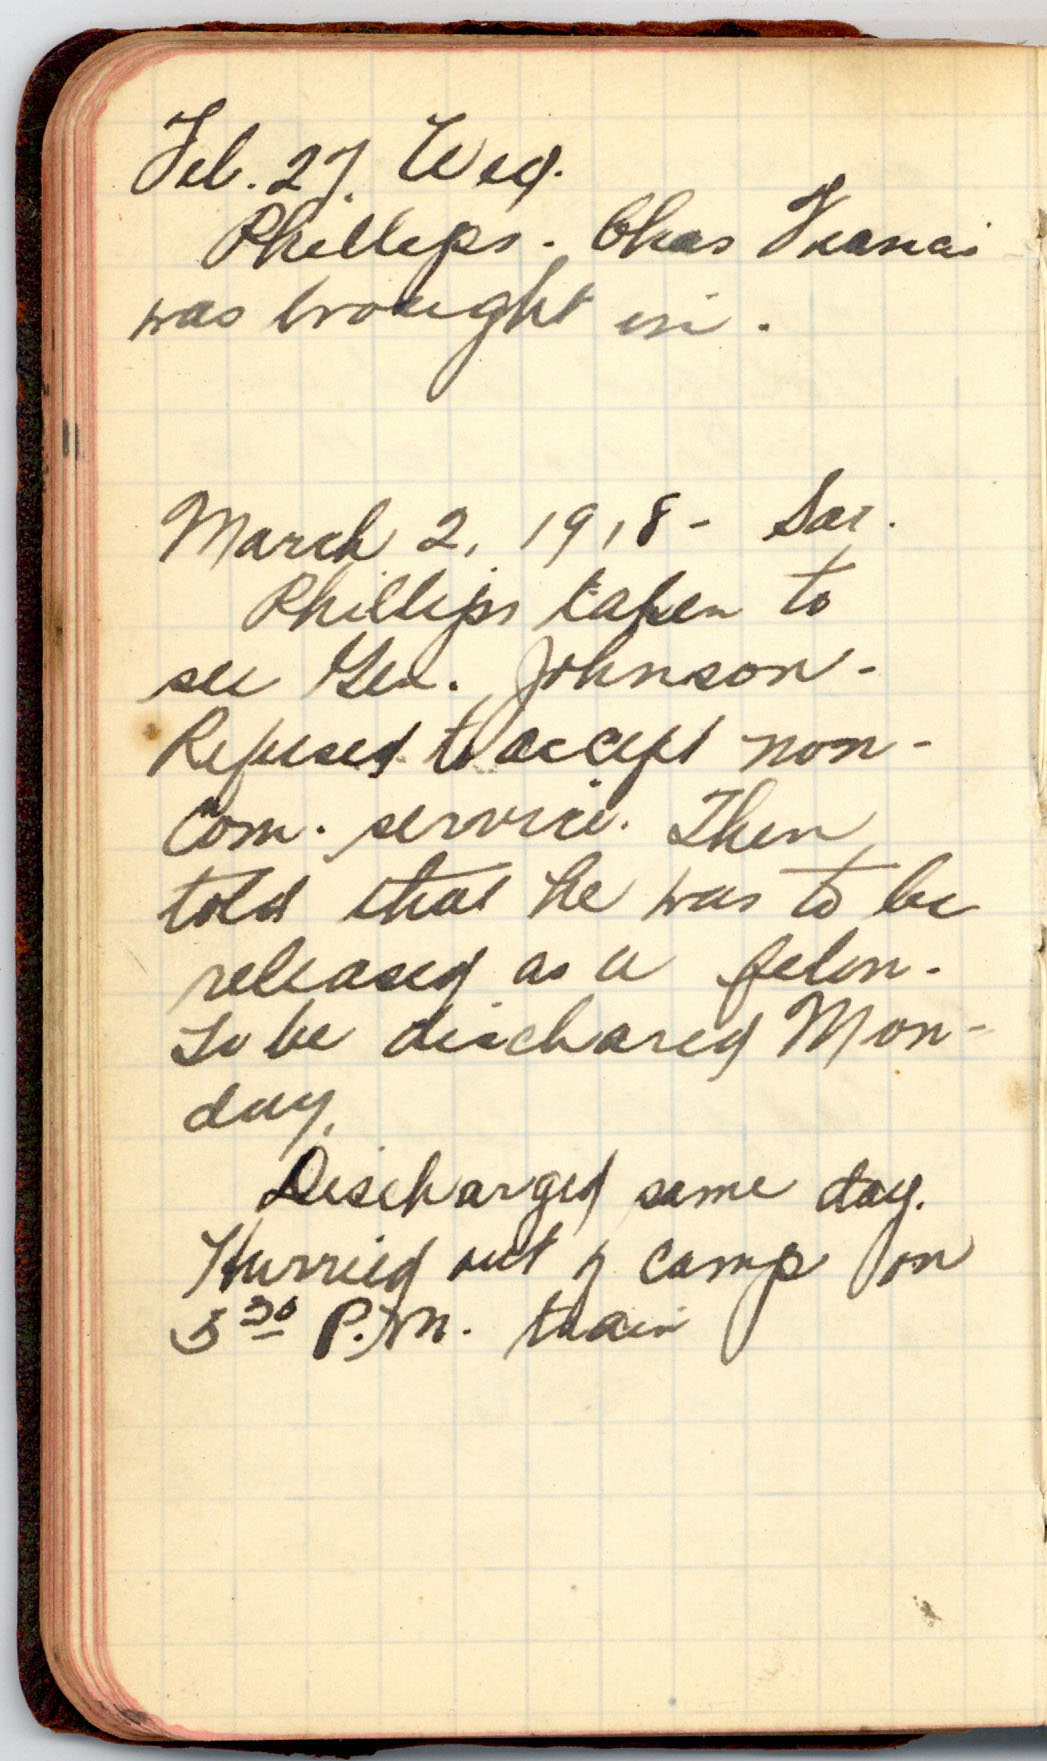 Feb. 27. Wed.
Phillips - Chas Francis
was brought in.
March 2, 1918 - Sat.
Phillips taken to
see Gen. Johnson -
Refused to accept non-
com. service. Then
told that he was to be
released as a felon.
To be dischared Mon-
day.
Discharged same day.
Hurried out of camp on
5 30 P.M. train